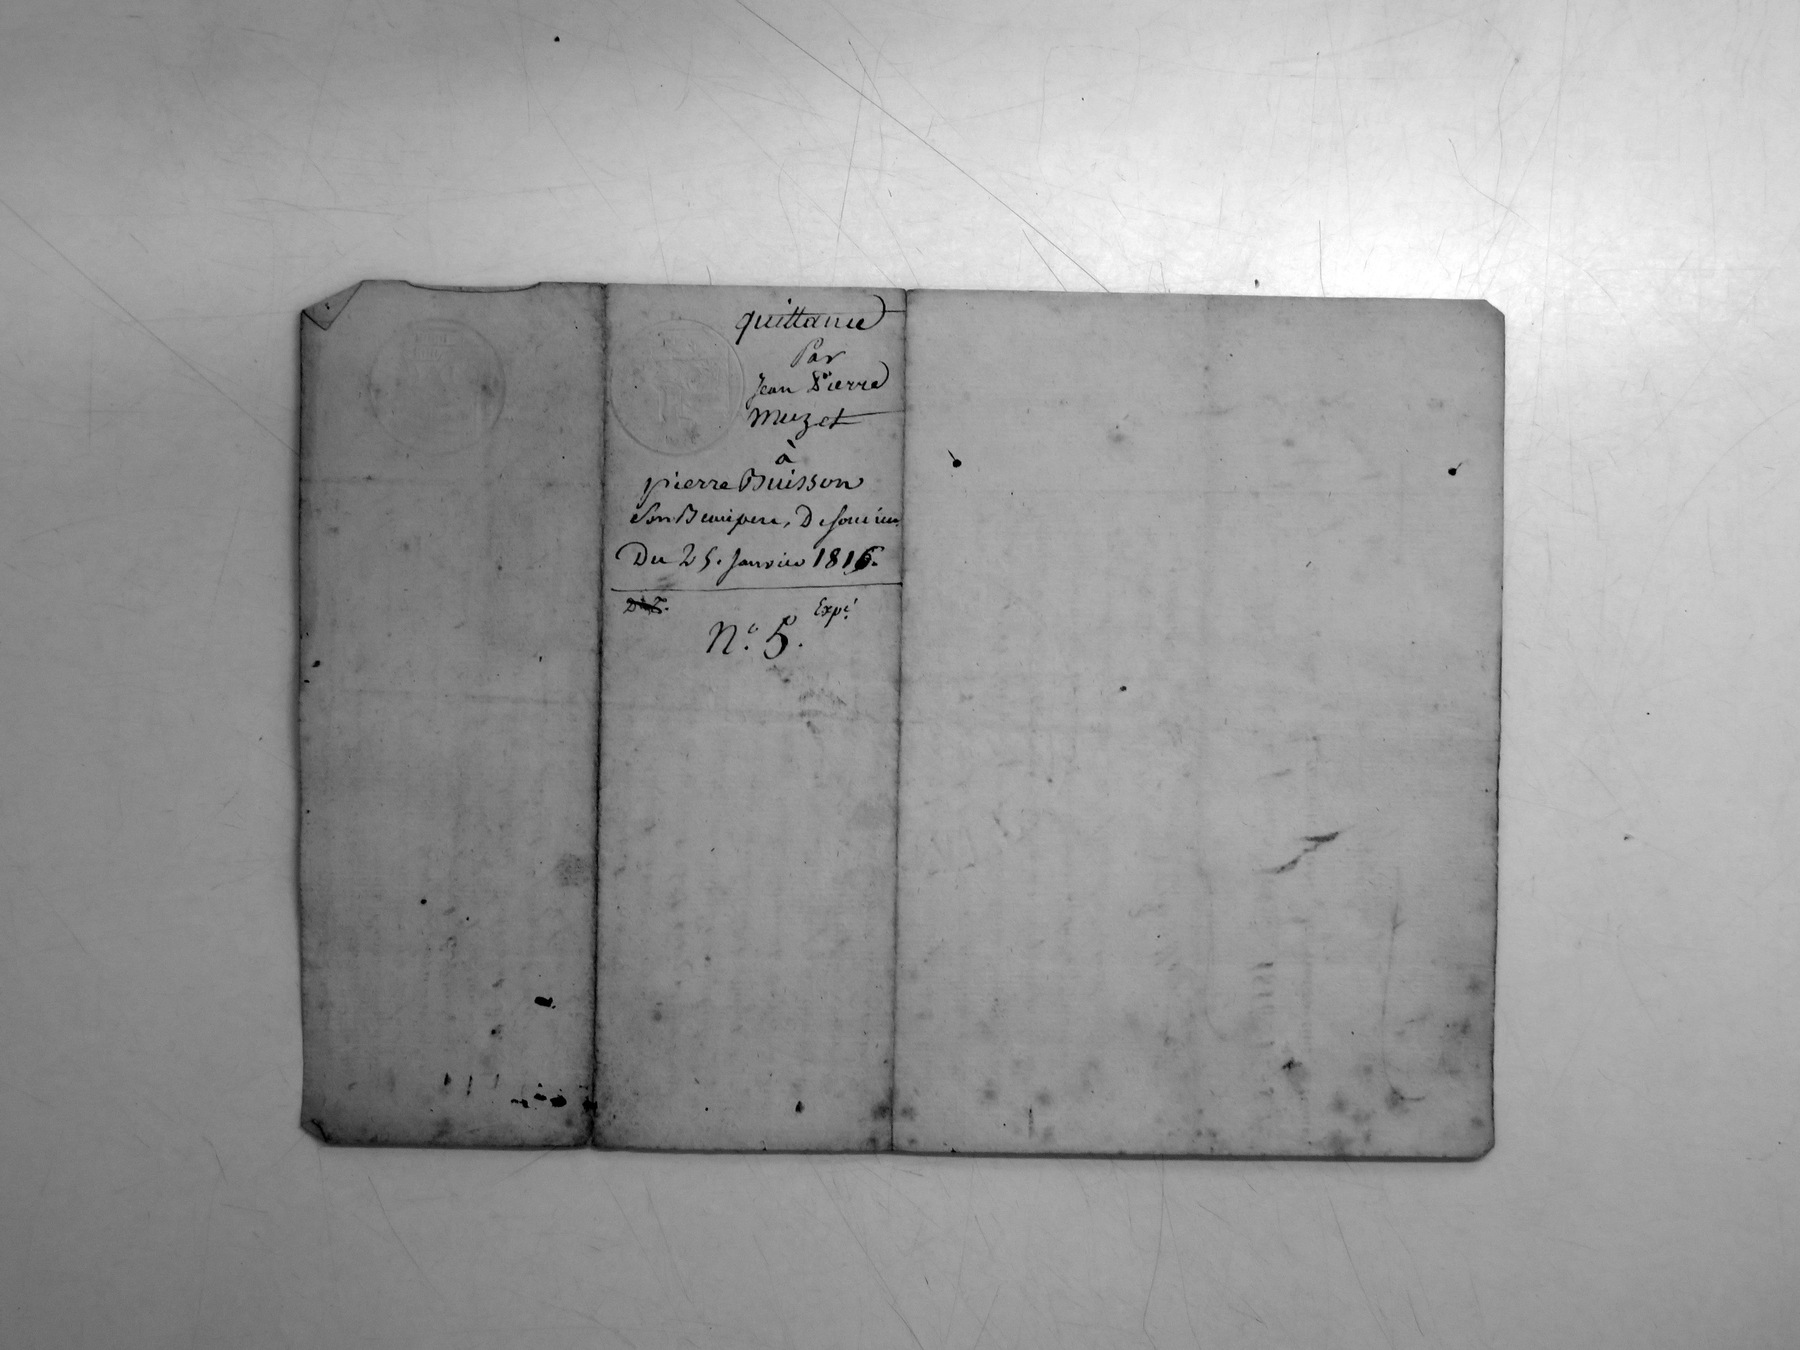 quittance
Par
Jean Pierre
Muzet
à
pierre Buisson
Son Beaupere,
Du 25. Janvier 1816.
Expé.
N.° 5.